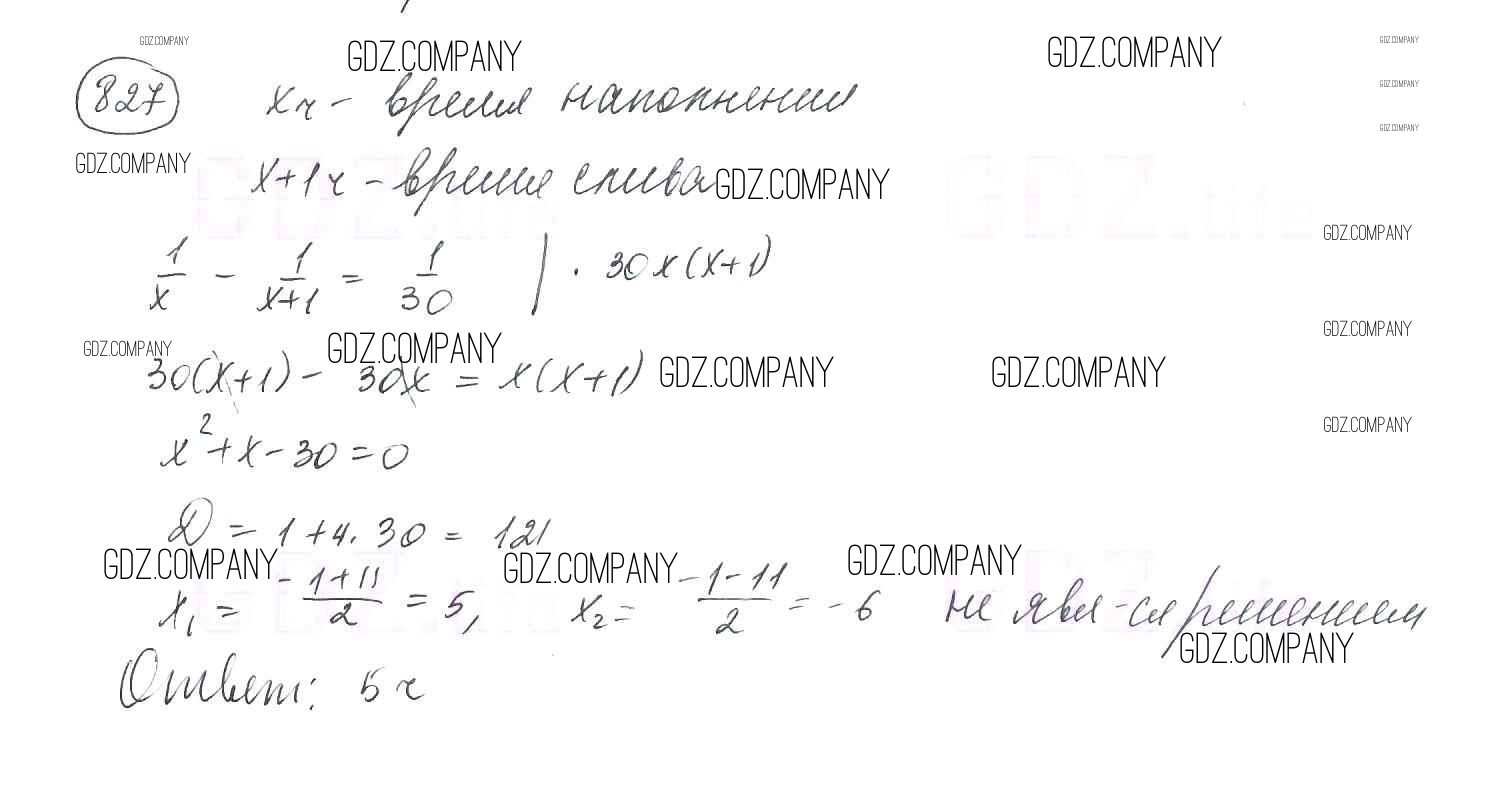 GDZ.COMPANY GDZ.COMPANY GDZ.COMPANY GDZ.COMPANY
827 xч - время наполнения GDZ.COMPANY
GDZ.COMPANY
GDZ.COMPANY x+1ч - время слива GDZ.COMPANY
GDZ.life GDZ.life GDZ.COMPANY
1/x - 1/(x+1) = 1/30 | · 30x(x+1)
GDZ.COMPANY
GDZ.COMPANY GDZ.COMPANY
30(x+1) - 30x = x(x+1) GDZ.COMPANY GDZ.COMPANY
GDZ.COMPANY
x² + x - 30 = 0
D = 1 + 4. 30 = 121
GDZ.COMPANY GDZ.COMPANY GDZ.COMPANY
x₁ = (-1+11)/2 = 5, x₂ = (-1-11)/2 = -6 не явл-ся решением
GDZ.COMPANY
Ответ: 5 ч